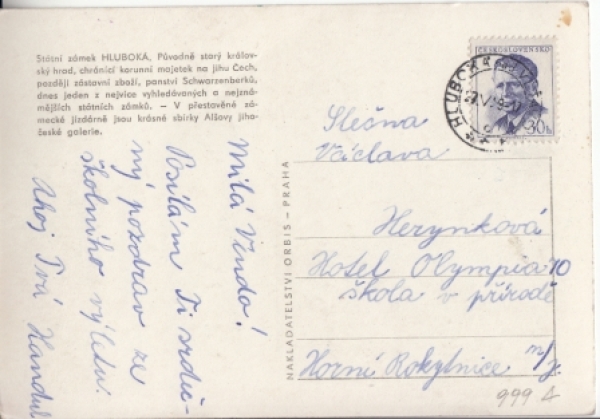 Státní zámek HLUBOKÁ, Původně starý králov-
ský hrad, chránící korunní majetek na jihu Čech,
později zástavní zboží, panství Schwarzenberků,
dnes jeden z nejvíce vyhledávaných a nejzná-
mějších státních zámků. – V přestavěné zá-
mecké jízdárně jsou krásné sbírky Alšovy jiho-
české galerie.
Milá Vendo!
Posílám Ti srdeč-
ný pozdrav ze
školního výletu.
Ahoj Tvá
NAKLADATELSTVÍ ORBIS – PRAHA
ČESKOSLOVENSKO
30h
HLUBOKÁ
Slečna
Václava
Herynková
Hotel Olympia 10
škola v přírodě
Horní Rokytnice n/J.
999 A